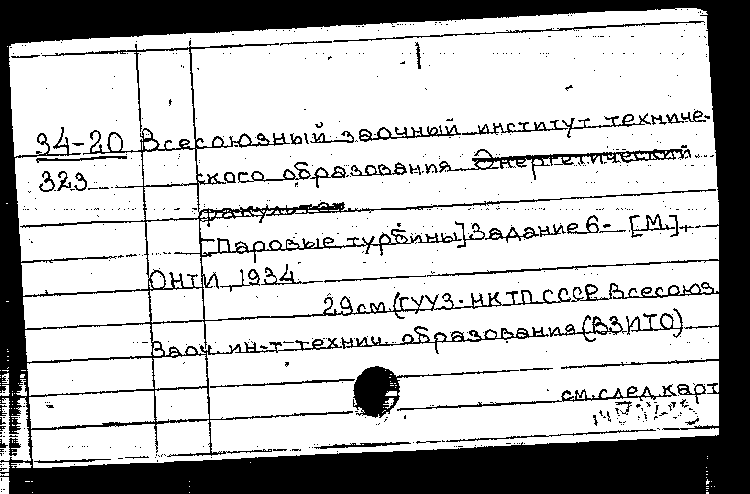 34-20 Всесоюзный заочный институт техниче-
323 ского образования Энергетический
факультет.
[Паровые турбины] Задание 6- [М.],
ОНТИ, 1934
29 см. (ГУУЗ-НКТП СССР. Всесоюз.
Заоч. ин-т технич. образования (ВЗИТО)
см. след. карт